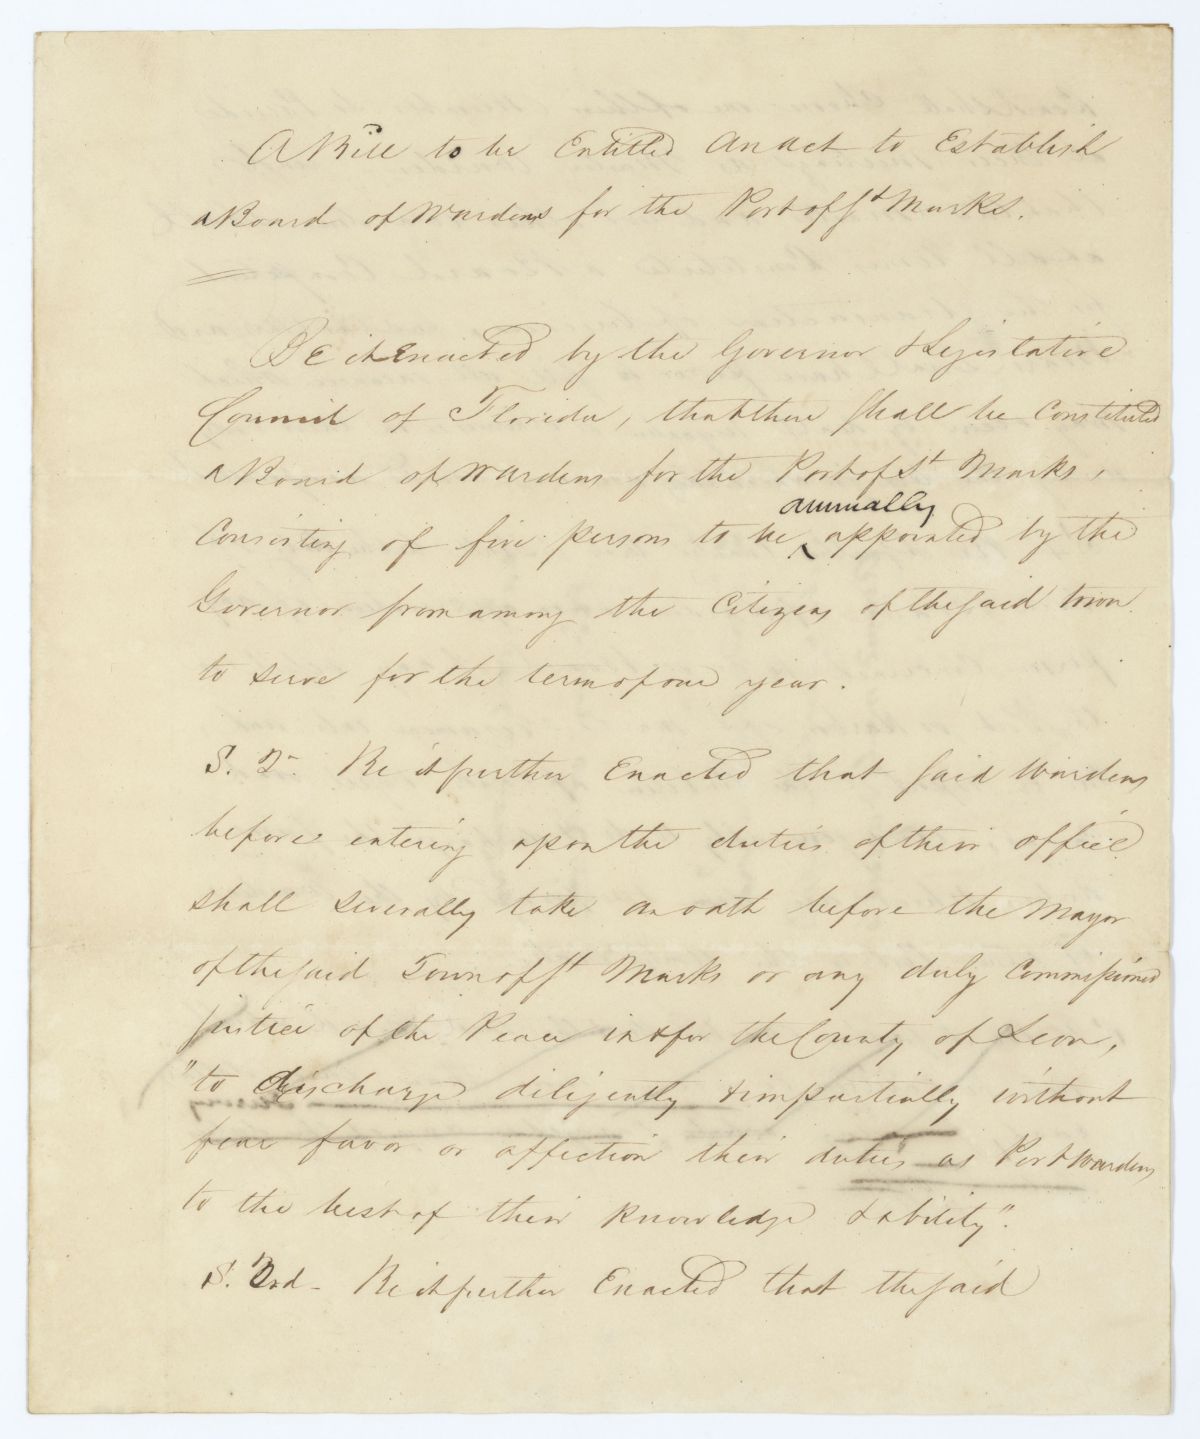 A Bill to be Entitled An act to Establish
a Board of Wardens for the Port of St Marks.
Be it Enacted by the Governor & Legislative
Council of Florida, that there shall be Constituted
a Board of Wardens for the Port of St Marks,
annually
Consisting of five persons to be ^ appointed by the
Governor from among the Citizens of the said town
to serve for the term of one year.
S. 2. Be it further Enacted that said Wardens
before entering upon the duties of their office
shall severally take an oath before the Mayor
of the said Town of St Marks or any duly Commissioned
justice of the Peace in & for the County of Leon,
"to discharge diligently & impartially without
fear favor or affection their duties as Port wardens
to the best of their knowledge & ability".
S. 3rd - Be it further Enacted that the said